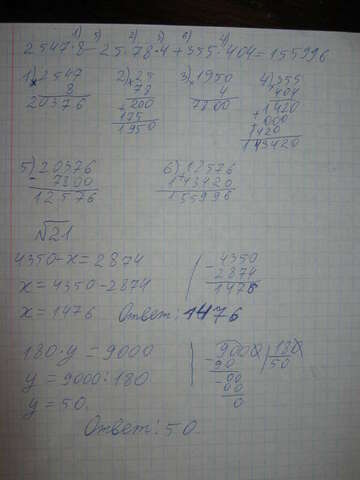 1) 5) 2) 3) 6) 4)
2547·8-25·78·4+355·404=155996
1) 2547 2) 25 3) 1950 4) 355
× 8 × 78 × 4 × 404
20376 200 7800 1420
+ 175 + 000
1950 1420
143420
5) 20376 6) 12576
- 7800 + 143420
12576 155996
√21
4350-x=2874 - 4350
x=4350-2874 2874
x=1476 Ответ: 1476 1476
180·y=9000 9000 180
y=9000:180 - 90 50
y=50. - 00
00
0
Ответ: 50